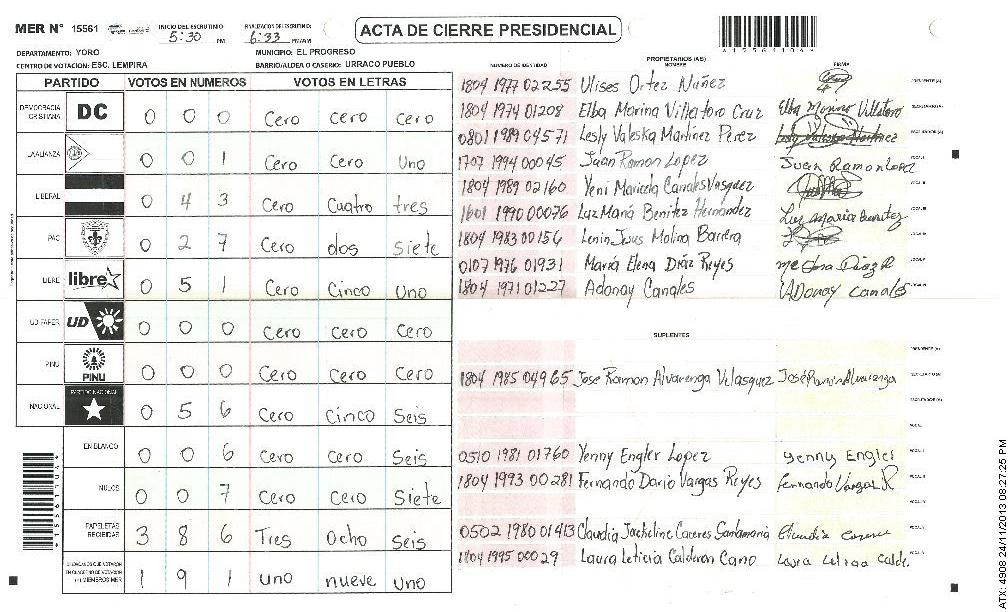 MER N° 15561
INICIO DEL ESCRUTINIO
5:30 PM
FINALIZACION DEL ESCRUTINIO:
6:33 PM/AM
ACTA DE CIERRE PRESIDENCIAL
DEPARTAMENTO: YORO
MUNICIPIO: EL PROGRESO
CENTRO DE VOTACION: ESC. LEMPIRA
BARRIO/ALDEA O CASERIO: URRACO PUEBLO
PARTIDO VOTOS EN NUMEROS VOTOS EN LETRAS
DEMOCRACIA CRISTIANA DC 0 0 0 Cero Cero Cero
LA ALIANZA 0 0 1 Cero Cero Uno
LIBERAL 0 4 3 Cero Cuatro tres
PAC 0 2 7 Cero dos Siete
LIBRE libre 0 5 1 Cero Cinco Uno
UD FAPER UD 0 0 0 Cero Cero Cero
PINU PINU 0 0 0 Cero Cero Cero
NACIONAL PARTIDO NACIONAL 0 5 6 Cero Cinco Seis
EN BLANCO 0 0 6 Cero Cero Seis
NULOS 0 0 7 Cero Cero Siete
PAPELETAS RECIBIDAS 3 8 6 Tres Ocho Seis
CIUDADANOS QUE VOTARON EN CUADERNO DE VOTACION (+) MIEMBROS MER 1 9 1 uno nueve uno
PROPIETARIOS (AS)
NUMERO DE IDENTIDAD NOMBRE FIRMA
1804 1977 02255 Ulises Ortez Nuñez PRESIDENTE (A)
1804 1974 01208 Elba Marina Villatoro Cruz Elba Marina Villatoro SECRETARIO (A)
0801 1989 04571 Lesly Valeska Martinez Perez Lesly Valeska Martinez ESCRUTADOR (A)
1707 1994 00045 Juan Ramon Lopez Juan Ramon Lopez VOCAL I
1804 1989 02160 Yeni Maricela Canales Vasquez VOCAL II
1601 1990 00076 Luz María Benitez Hernández Luz Maria Benitez VOCAL III
1804 1983 00156 Lenin Jesus Molina Barrera
0107 1976 01931 María Elena Díaz Reyes
1804 1971 01227 Adonay Canales Adonay Canales
SUPLENTES
PRESIDENTE (A)
1804 1985 04965 Jose Ramon Alvarenga Velasquez José Ramón Alvarenga SECRETARIO (A)
ESCRUTADOR (A)
VOCAL I
0510 1981 01760 Yenny Engler Lopez Yenny Engler
1804 1993 00281 Fernando Dario Vargas Reyes Fernando Vargas R
0502 1980 01413 Claudia Jackeline Caceres Santamaria Claudia
1804 1995 00029 Laura Leticia Calderon Cano Laura Leticia Calde.
ATX: 4908 24/11/2013 08:27:25 PM